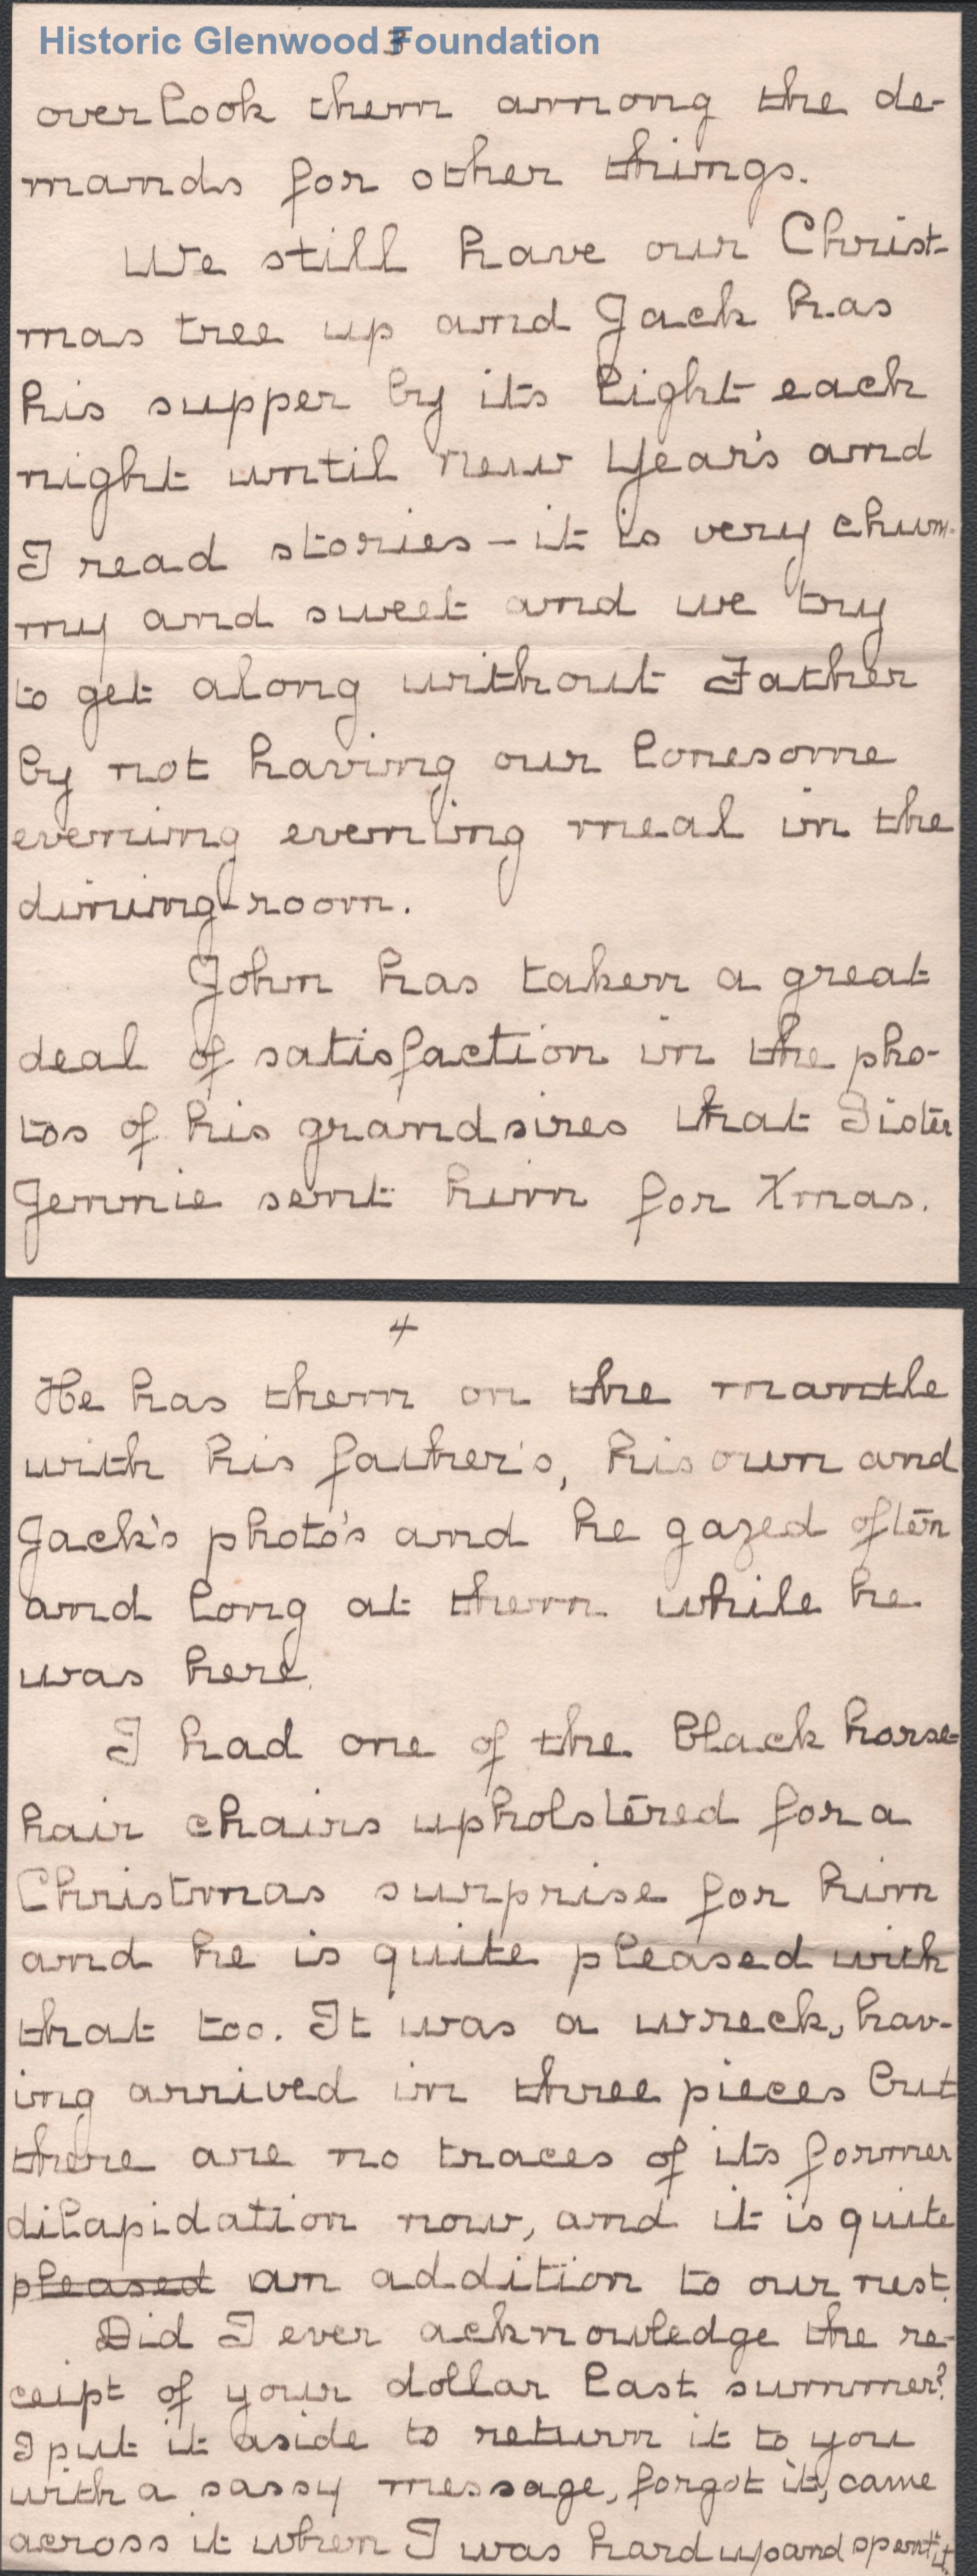 Historic Glenwood Foundation
3
overlook them among the de-
mands for other things.
We still have our Christ-
mas tree up and Jack has
his supper by its light each
night until New Year's and
I read stories – it is very chum-
my and sweet and we try
to get along without Father
by not having our lonesome
evening evening meal in the
dining-room.
John has taken a great
deal of satisfaction in the pho-
tos of his grandsires that Sister
Jennie sent him for Xmas.
4
He has them on the mantle
with his father's, his own and
Jack's photo's and he gazed often
and long at them while he
was here.
I had one of the black horse-
hair chairs upholstered for a
Christmas surprise for him
and he is quite pleased with
that too. It was a wreck, hav-
ing arrived in three pieces but
there are no traces of its former
dilapidation now, and it is quite
pleased an addition to our nest.
Did I ever acknowledge the re-
ceipt of your dollar last summer?
I put it aside to return it to you
with a sassy message, forgot it, came
across it when I was hard up and spent it.